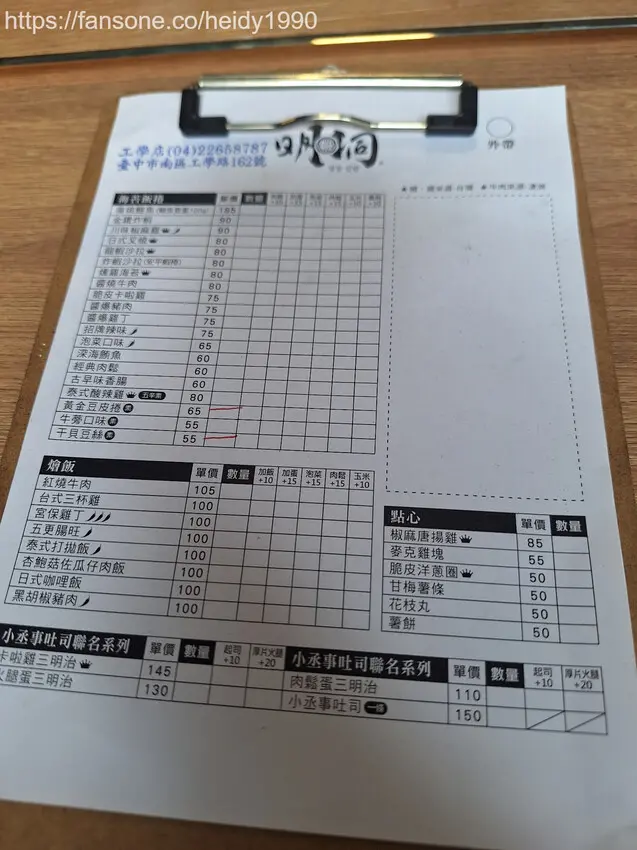 https://fansone.co/heidy1990
工學店(04)22658787
臺中市南區工學路162號
明洞
外帶
海苔飯捲 單價 數量
185
80
川味椒麻雞 80
日式叉燒 80
龍蝦沙拉 80
炸蝦沙拉 80
燻雞海苔 80
醬燒牛肉 80
脆皮卡啦雞 75
醬爆豬肉 75
醬爆雞丁 75
招牌辣味 75
泡菜口味 65
深海鮪魚 60
經典肉鬆 60
古早味香腸 60
泰式酸辣雞 五辛素 80
黃金豆皮捲 素 65
牛蒡口味 素 55
干貝豆絲 素 55
燴飯 單價 數量 加飯+10 加蛋+15 泡菜+15 肉鬆+15 玉米+10
紅燒牛肉 105
台式三杯雞 100
宮保雞丁 100
五更腸旺 100
泰式打拋飯 100
杏鮑菇佐瓜仔肉飯 100
日式咖哩飯 100
黑胡椒豬肉 100
點心 單價 數量
椒麻唐揚雞 85
麥克雞塊 55
脆皮洋蔥圈 50
甘梅薯條 50
花枝丸 50
薯餅 50
小丞事吐司聯名系列 單價 數量 起司+10 厚片火腿+20
卡啦雞三明治 145
火腿蛋三明治 130
小丞事吐司聯名系列 單價 數量 起司+10 厚片火腿+20
肉鬆蛋三明治 110
小丞事吐司 一條 150